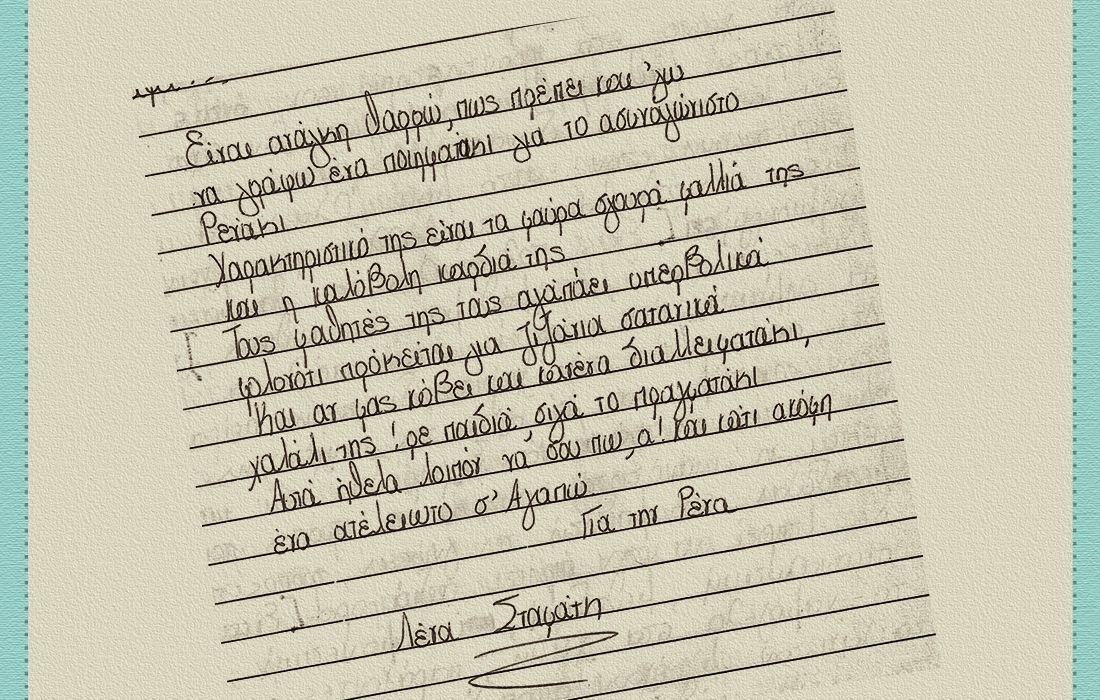 Είναι ανάγκη θαρρώ, πως πρέπει και 'γω
να γράψω ένα ποιηματάκι για το ασυναγώνιστο
Ρενάκι
Χαρακτηριστικό της είναι τα μαύρα σγουρά μαλλιά της
και η καλόβολη καρδιά της
Τους μαθητές της τους αγαπάει υπερβολικά
μολονότι πρόκειται για ζιζάνια σατανικά
Και αν μας κόβει και κανένα διαλλειματάκι,
χαλάλι της! ρε παιδιά σιγά το πραγματάκι
Αυτά ήθελα λοιπόν να σου πω, α! και κάτι ακόμη
ένα ατέλειωτο σ' Αγαπώ
Για την Ρένα
Λένα Σταμάτη